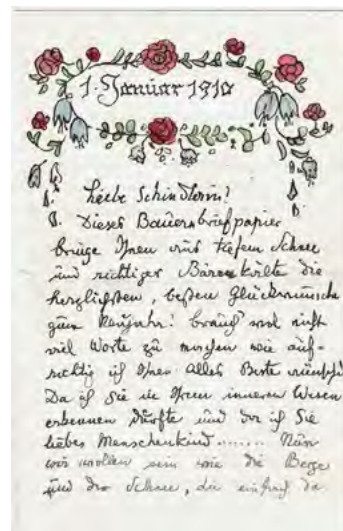 1. Januar 1910
Liebe Schindlerin!
Dieses Bauernbriefpapier
bringe Ihnen aus tiefem Schnee
und richtiger Bärenkälte die
herzlichsten, besten Glückwünsche
zum Neujahr! brauch wol nicht
viel Worte zu machen wie auf-
richtig ich Ihnen Alles Beste wünsche
Da ich Sie in Ihrem inneren Wesen
erkennen durfte und da ich Sie
liebes Menschenkind....... Nun
wir wollen sein wie die Berge
und der Schnee, die einfach da